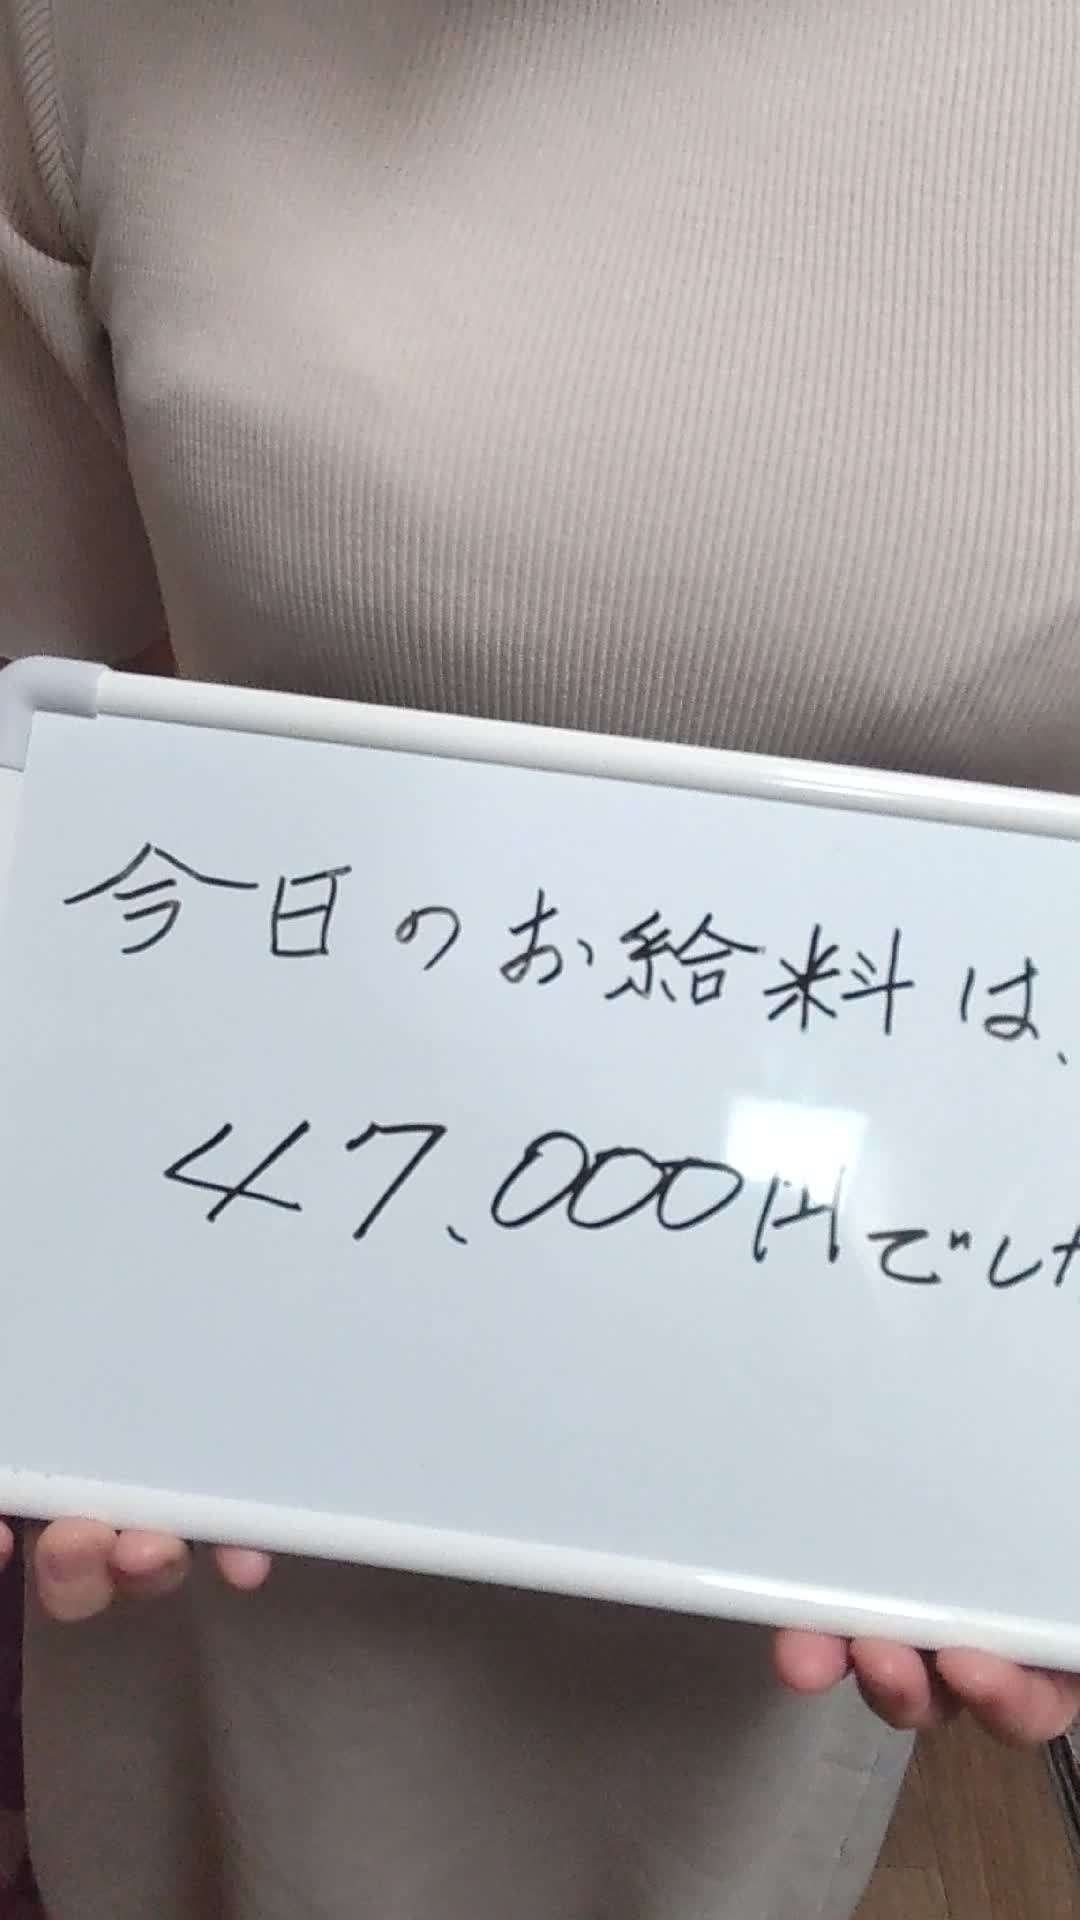 今日のお給料は、
47,000円でした